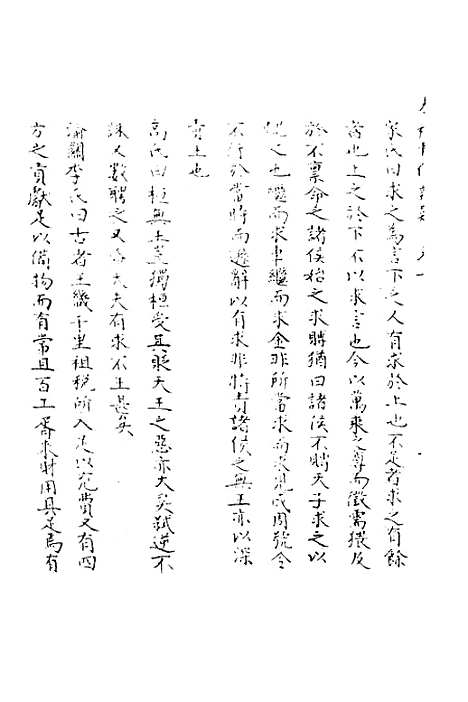 家氏曰求之為言下之人有求於上也不足者求之有餘
者也上之於下不以求言也今以萬乘之尊而徵需猥及
於不禀命之諸侯始之求賻猶曰諸侯不賻天子求之以
也繼而求車繼而求金非所當求而求見周號令
不行於當時而遜辭以有求非特責諸侯之無王亦以深
責上也
高氏曰桓無王莫王之惡亦大矣弑逆不
誅又數聘之又大夫有求不王甚矣
李氏曰古者王畿千里租稅所入足以充費又有四
方之貢獻足以備物而有常且百工財用具足焉有